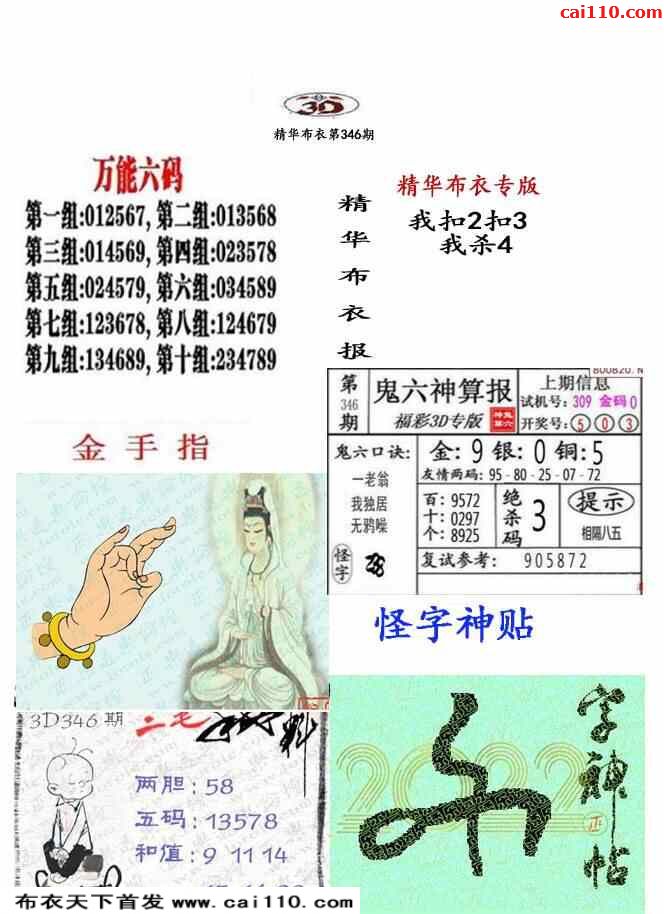 cai110.com
3D
精华布衣第346期
万能六码
第一组:012567, 第二组:013568
第三组:014569, 第四组:023578
第五组:024579, 第六组:034589
第七组:123678, 第八组:124679
第九组:134689, 第十组:234789
精华布衣报
精华布衣专版
我扣2扣3
我杀4
金手指
第346期
鬼六神算报
福彩3D专版
上期信息
试机号: 309 金码 0
开奖号: 5 0 3
鬼六口诀:
一老翁
我独居
无鸦噪
怪字
金: 9 银: 0 铜: 5
友情两码: 95-80-25-07-72
百: 9572
十: 0297
个: 8925
绝杀码 3
提示
相隔八五
复试参考: 905872
怪字神贴
3D346期
两胆: 58
五码: 13578
和值: 9 11 14
2022
字神帖
正
布衣天下首发 www.cai110.com